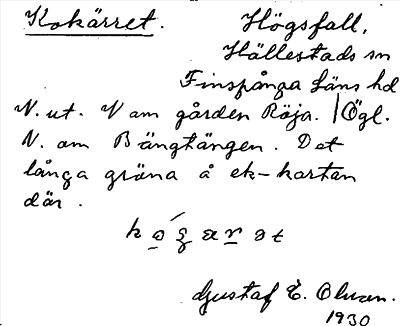 Kokärret. Högsfall,
Hällestads sn
Finspånga läns hd
N. ut. V om gården Röja. | Ögl.
N. om Bängtängen. Det
långa gröna å ek-kartan
där.
Gustaf E. Olsson.
1930